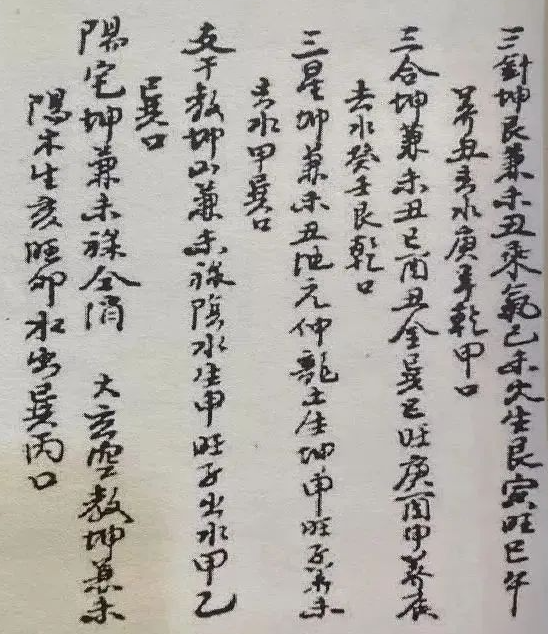 三針坤艮兼未丑乘氣己未火生艮寅旺巳午
葬丑去水庚辛乾甲口
三合坤兼未丑巳酉丑金巽巳旺庚酉申葬辰
去水癸壬艮乾口
三星坤兼未丑地元仲龍土生坤申旺子癸未
去水甲巽口
支干教坤山兼未祿陰水生申旺子出水甲乙
巽口
陽宅坤兼未祿全消 大玄空教坤兼未
陽木生亥旺卯水出巽丙口